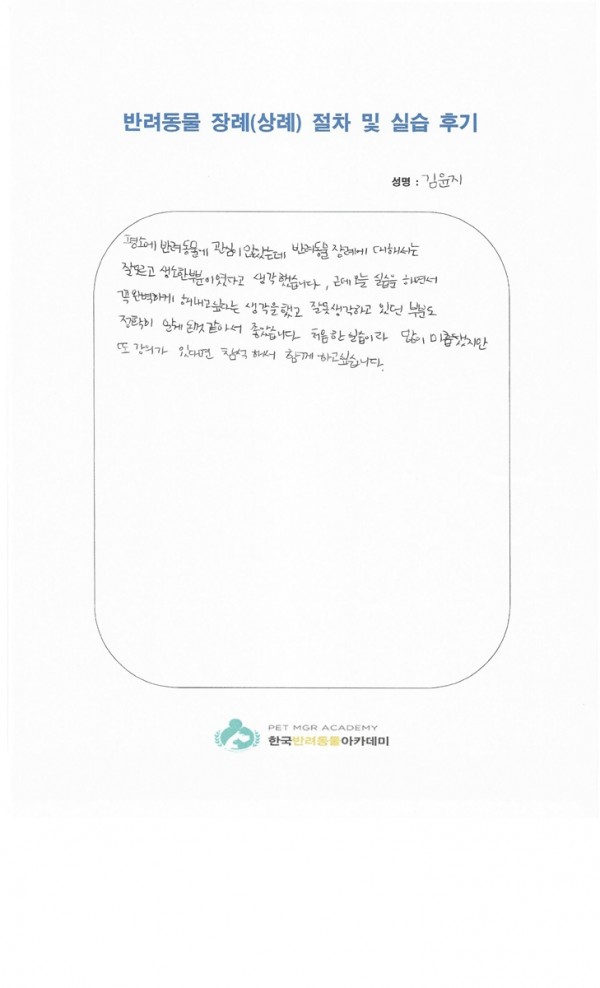 반려동물 장례(상례) 절차 및 실습 후기
성명 : 김윤지
평소에 반려동물에 관심이 많았는데 반려동물 장례에 대해서는
잘모르고 생소한부분이였다고 생각했습니다, 근데 오늘 실습을 하면서
꼭완벽하게 해내고싶다는 생각을했고 잘못생각하고 있던 부분도
정확히 알게 된것 같아서 좋았습니다 처음한실습이라 많이 미흡했지만
또 강의가 있다면 참석해서 함께 하고싶습니다.
PET MGR ACADEMY
한국반려동물아카데미